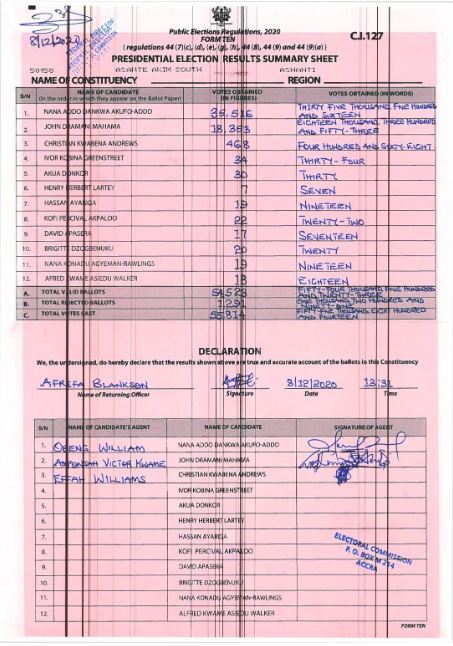 8/12/2020
Public Elections Regulations, 2020
FORM TEN
C.I.127
( regulations 44 (7)(c), (d), (e), (g), (h), 44 (8), 44 (9) and 44 (9)(a) )
PRESIDENTIAL ELECTION RESULTS SUMMARY SHEET
ASANTE AKIM SOUTH ASHANTI
NAME OF CONSTITUENCY REGION
S/N NAME OF CANDIDATE VOTES OBTAINED VOTES OBTAINED (IN WORDS)
(In the order in which they appear on the Ballot Paper) (IN FIGURES)
1. NANA ADDO DANKWA AKUFO-ADDO 35,516 THIRTY FIVE THOUSAND, FIVE HUNDRED AND SIXTEEN
2. JOHN DRAMANI MAHAMA 18,353 EIGHTEEN THOUSAND, THREE HUNDRED AND FIFTY-THREE
3. CHRISTIAN KWABENA ANDREWS 468 FOUR HUNDRED AND SIXTY-EIGHT
4. IVOR KOBINA GREENSTREET 34 THIRTY-FOUR
5. AKUA DONKOR 30 THIRTY
6. HENRY HERBERT LARTEY 7 SEVEN
7. HASSAN AYARIGA 19 NINETEEN
8. KOFI PERCIVAL AKPALOO 22 TWENTY-TWO
9. DAVID APASERA 17 SEVENTEEN
10. BRIGITTE DZOGBENUKU 20 TWENTY
11. NANA KONADU AGYEMAN-RAWLINGS 19 NINETEEN
12. ALFRED KWAME ASIEDU WALKER 18 EIGHTEEN
A. TOTAL VALID BALLOTS 54,523 FIFTY-FOUR THOUSAND, FIVE HUNDRED AND TWENTY-THREE
B. TOTAL REJECTED BALLOTS 1,291 ONE THOUSAND, TWO HUNDRED AND NINETY-ONE
C. TOTAL VOTES CAST 55,814 FIFTY-FIVE THOUSAND, EIGHT HUNDRED AND FOURTEEN
DECLARATION
We, the undersigned, do hereby declare that the results shown above are true and accurate account of the ballots in this Constituency
AFRIFA BLANKSON 8/12/2020 13:31
Name of Returning Officer Signature Date Time
S/N NAME OF CANDIDATE'S AGENT NAME OF CANDIDATE SIGNATURE OF AGENT
1. OBENG WILLIAM NANA ADDO DANKWA AKUFO-ADDO
2. AMPONSAH VICTOR KWAME JOHN DRAMANI MAHAMA
3. EFFAH WILLIAMS CHRISTIAN KWABENA ANDREWS
4. IVOR KOBINA GREENSTREET
5. AKUA DONKOR
6. HENRY HERBERT LARTEY
7. HASSAN AYARIGA
8. KOFI PERCIVAL AKPALOO
9. DAVID APASERA
10. BRIGITTE DZOGBENUKU
11. NANA KONADU AGYEMAN-RAWLINGS
12. ALFRED KWAME ASIEDU WALKER
ELECTORAL COMMISSION
P. O. BOX M 214
ACCRA
FORM TEN